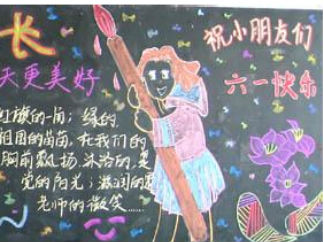 长
天更美好
祝小朋友们
六一快乐
红旗的一角；绿的
祖国的苗苗，在我们的
胸前飘扬，沐浴的，是
党的阳光；滋润的是
老师的微笑……